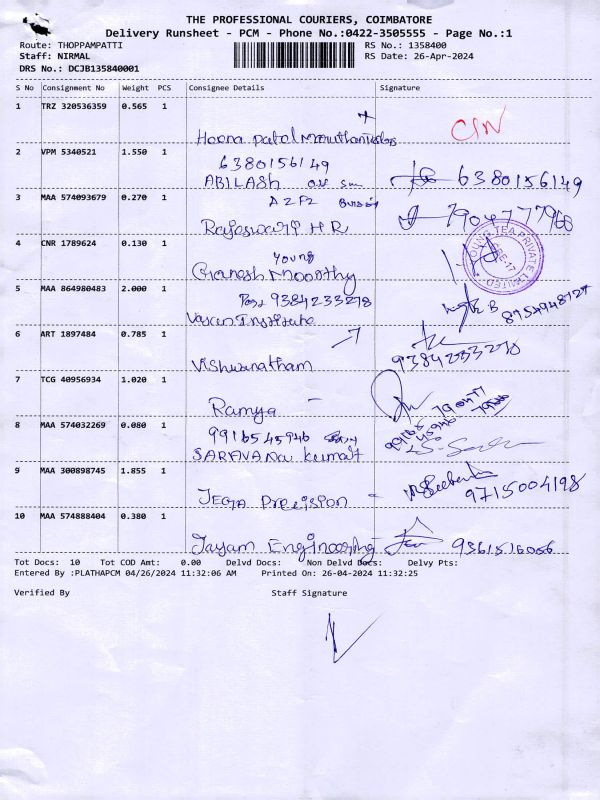 THE PROFESSIONAL COURIERS, COIMBATORE
Delivery Runsheet - PCM - Phone No.:0422-3505555 - Page No.:1
Route: THOPPAMPATTI RS No.: 1358400
Staff: NIRMAL RS Date: 26-Apr-2024
DRS No.: DCJB135840001
S No Consignment No Weight PCS Consignee Details Signature
1 TRZ 320536359 0.565 1
Heena Patel
2 VPM 5340521 1.550 1
6380156149
ABILASH 6380156149
3 MAA 574093679 0.270 1
Rajeswari H R 7904777960
4 CNR 1789624 0.130 1
Young
Ganesh Moorthy
YOUNG TEA PRIVATE LIMITED
5 MAA 864980483 2.000 1
9384233278
Vasan Institute 8754948727
6 ART 1897484 0.785 1
Vishwanatham 9384233278
7 TCG 40956934 1.020 1
Ramya -
8 MAA 574032269 0.080 1
9916545946
SARAVANA Kumar
9 MAA 300898745 1.855 1
JEGA Precision 9715004198
10 MAA 574888404 0.380 1
Jayam Engineering 9361516066
Tot Docs: 10 Tot COD Amt: 0.00 Delvd Docs: Non Delvd Docs: Delvy Pts:
Entered By :PLATHAPCM 04/26/2024 11:32:06 AM Printed On: 26-04-2024 11:32:25
Verified By Staff Signature